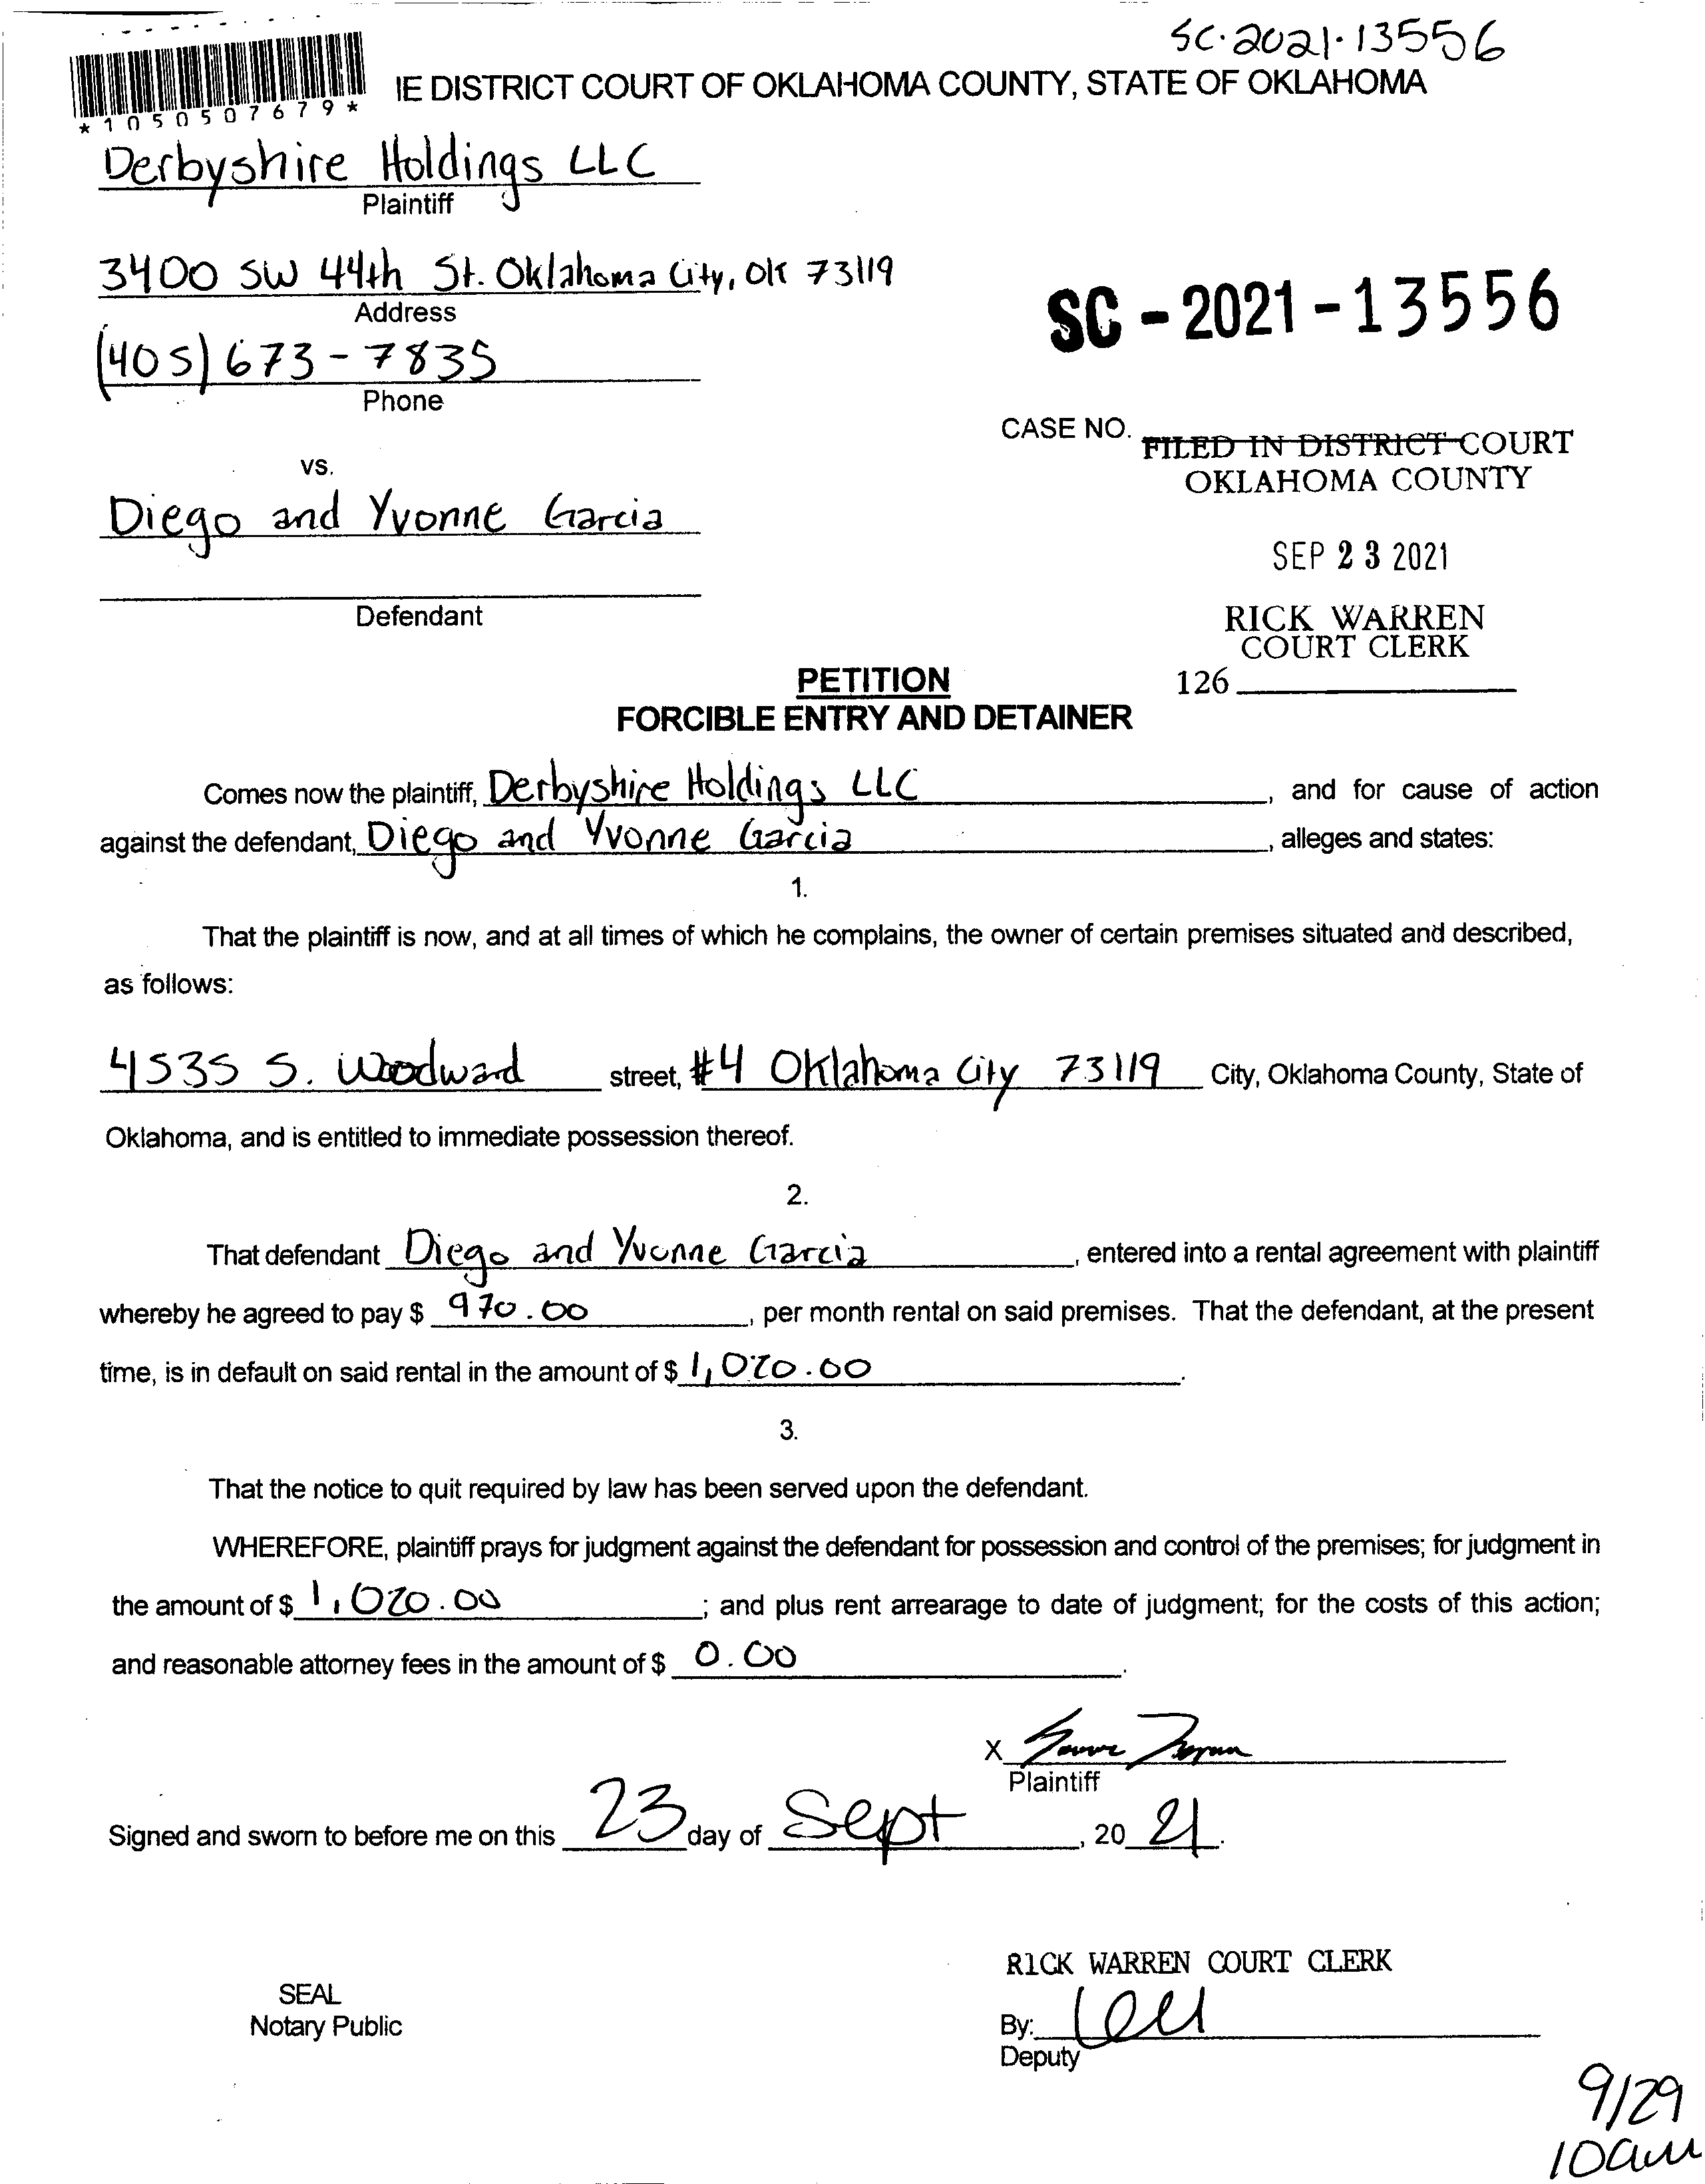 SC-2021-13556
IE DISTRICT COURT OF OKLAHOMA COUNTY, STATE OF OKLAHOMA
*1050507679*
Derbyshire Holdings LLC
Plaintiff
3400 SW 44th St. Oklahoma City, OK 73119
Address
SC - 2021 - 13556
(405) 673-7835
Phone
CASE NO. FILED IN DISTRICT COURT
OKLAHOMA COUNTY
vs.
Diego and Yvonne Garcia
SEP 23 2021
Defendant
RICK WARREN
COURT CLERK
126
PETITION
FORCIBLE ENTRY AND DETAINER
Comes now the plaintiff, Derbyshire Holdings LLC, and for cause of action
against the defendant, Diego and Yvonne Garcia, alleges and states:
1.
That the plaintiff is now, and at all times of which he complains, the owner of certain premises situated and described,
as follows:
4535 S. Woodward street, #4 Oklahoma City 73119 City, Oklahoma County, State of
Oklahoma, and is entitled to immediate possession thereof.
2.
That defendant Diego and Yvonne Garcia, entered into a rental agreement with plaintiff
whereby he agreed to pay $ 970.00, per month rental on said premises. That the defendant, at the present
time, is in default on said rental in the amount of $ 1,020.00.
3.
That the notice to quit required by law has been served upon the defendant.
WHEREFORE, plaintiff prays for judgment against the defendant for possession and control of the premises; for judgment in
the amount of $ 1,020.00; and plus rent arrearage to date of judgment; for the costs of this action;
and reasonable attorney fees in the amount of $ 0.00.
X
Plaintiff
Signed and sworn to before me on this 23 day of Sept, 20 21.
RICK WARREN COURT CLERK
SEAL
Notary Public
By:
Deputy
9/29
10am